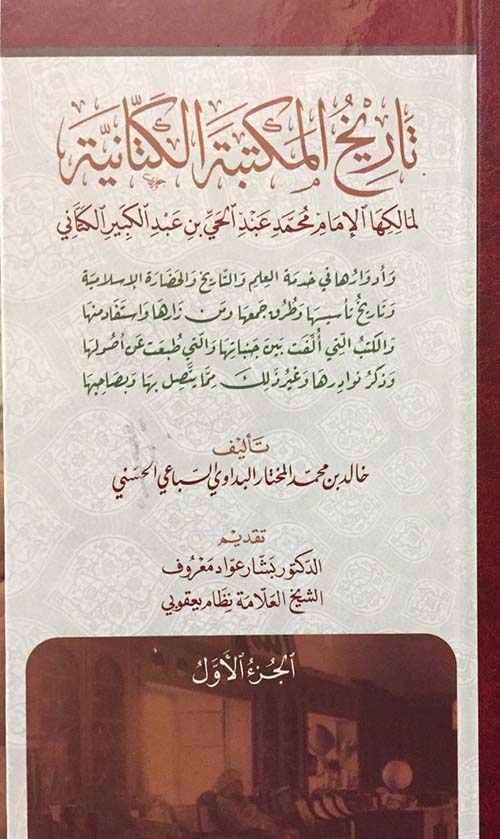 تَارِيْخُ المَكْتَبَةِ الكَتَّانِيَّة
لمالِكِهَا الإِمَامِ مُحَمَّد عَبْدِ الحَيِّ بن عَبْدِ الكَبِيرِ الكَتَّانِي
وَأدوَارُهَا في خدمَة العِلمِ وَالتَّاريخِ وَالحَضَارَةِ الإسلَاميَّة
وَتَاريخُ تأسيسِهَا وَطُرُق جَمعِهَا وَمَن زَارَهَا وَاستَفَادمنهَا
وَالكُتُبُ الَّتِي أُلِّفَت بَينَ جَنبَاتِهَا وَالَّتِي طُبعَت عَن أُصُولِهَا
وَذِكرُ نوَادِرهَا وَغَيْرُ ذَلِكَ مِمَّا يَتَّصِل بِهَا وَبصَاحِبِهَا
تَأليْف
خالد بن محمد المختار البداوي السباعي الحسَني
تقديْم
الدكتور بَشَّار عوّاد مَعْرُوف
الشيخ العَلّامَة نِظَام يَعقوبي
الجُزءُ الأَوَّلُ